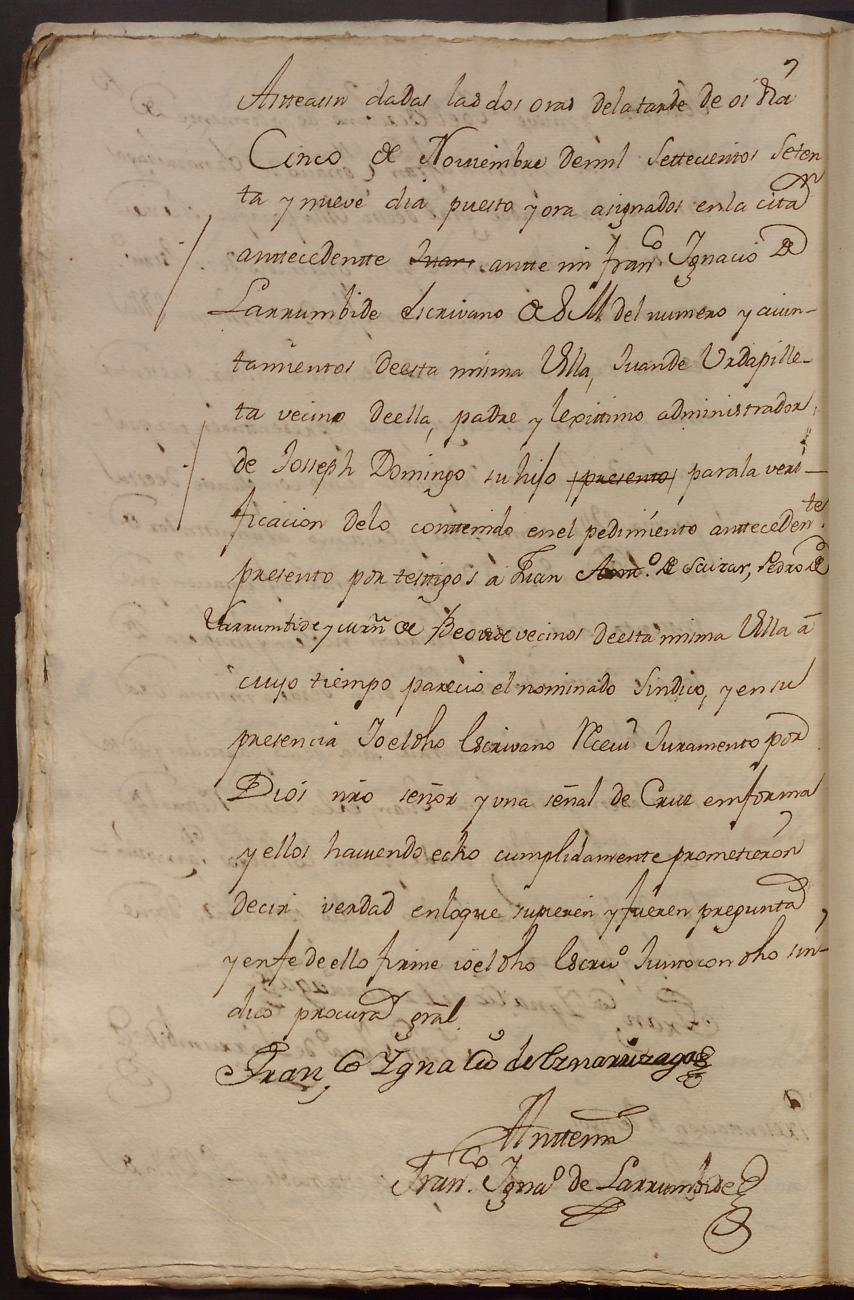 dadas las dos oras dela tarde de oi dia
Cinco de Noviembre demil Settecientos Seten
ta y nueve dia puesto y ora asignados enla citaon
anttecedentte Juan antte mi Franco Ignacio de
Larrumbide Escrivano de S M del numero y aiun-
tamientos deesta misma Villa, Juande Urdapille-
ta vecino deella, padre y lexittimo administrador
de Josseph Domingo su hijo presento parala veri-
ficacion delo conttenido enel pedimiento anttecedente
presento por testtigos a Juan de Saizar, Pedro de
Larrumbide y de vecinos deesta misma Villa â
cuyo tiempo parecio el nominado Sindico, y en su
presencia Io el dho Escrivano Recevi Juramento por
Dios nro señor y una señal de Cruz en forma
y ellos haviendo echo cumplidamente prometieron
decir verdad enloque supieren y fueren preguntados
y enfe deello firme io el dho Escrivo Junto con dho sin-
dico procurador gral.
Franco Ygnacio de
Anttemi
Franco Ignao de Larrumbide